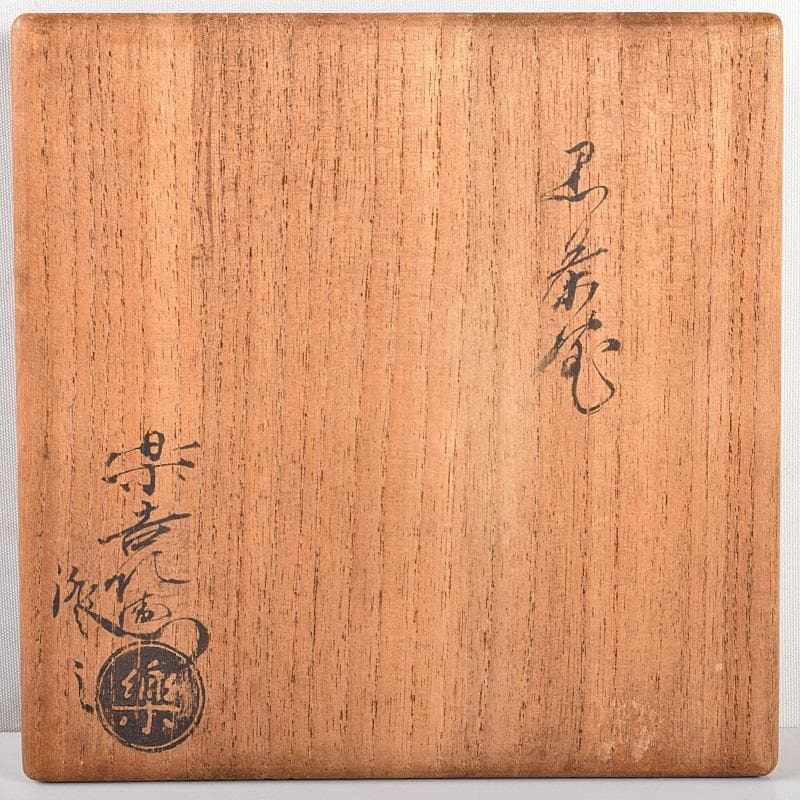 黒茶碗
楽吉左衛門
造之
樂